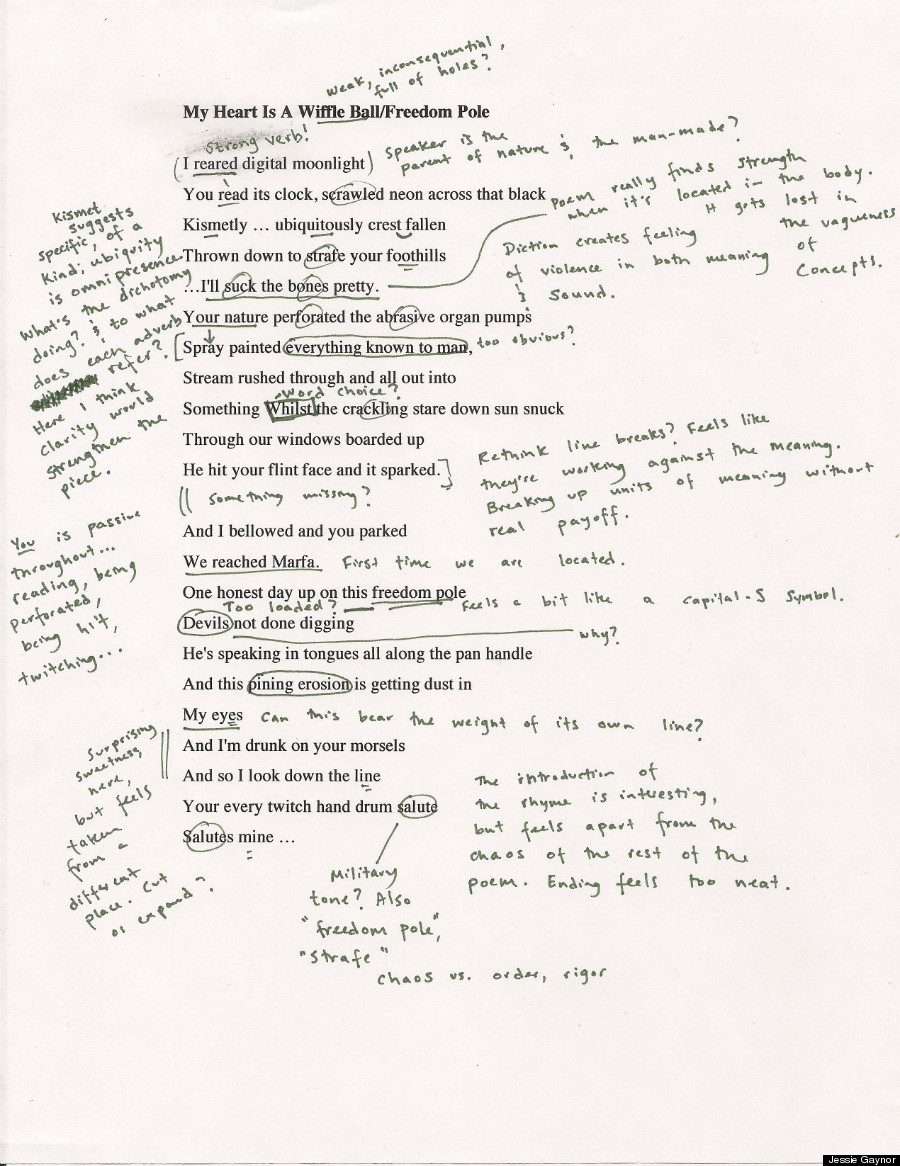 weak, inconsequential,
full of holes?
My Heart Is A Wiffle Ball/Freedom Pole
strong verb!
(I reared digital moonlight)
Speaker is the
parent of nature & the man-made?
You read its clock, scrawled neon across that black
Kismetly … ubiquitously crest fallen
Thrown down to strafe your foothills
…I'll suck the bones pretty.
Poem really finds strength
when it's located in the body.
It gets lost in
the vagueness
of
concepts.
Diction creates feeling
of violence in both meaning
& sound.
Kismet
suggests
specific, of a
kind; ubiquity
is omnipresence.
What's the dichotomy
doing? & to what
does each adverb
refer?
Here I think
clarity would
strengthen the
piece.
Your nature perforated the abrasive organ pumps
Spray painted everything known to man,
too obvious?
Stream rushed through and all out into
word choice?
Something Whilst the crackling stare down sun snuck
Through our windows boarded up
He hit your flint face and it sparked.
Rethink line breaks? Feels like
they're working against the meaning.
Breaking up units of meaning without
real payoff.
something missing?
And I bellowed and you parked
You is passive
throughout...
reading, being
perforated,
being hit,
twitching...
We reached Marfa.
First time we are located.
One honest day up on this freedom pole
Too loaded?
Feels a bit like a capital-S symbol.
Devils not done digging
why?
He's speaking in tongues all along the pan handle
And this pining erosion is getting dust in
My eyes
Can this bear the weight of its own line?
And I'm drunk on your morsels
And so I look down the line
Surprising
sweetness
here,
but feels
taken
from a
different
place. Cut
or expand?
Your every twitch hand drum salute
Salutes mine …
The introduction of
the rhyme is interesting,
but feels apart from the
chaos of the rest of the
poem. Ending feels too neat.
Military
tone? Also
"freedom pole",
"strafe"
chaos vs. order, rigor
Jessie Gaynor